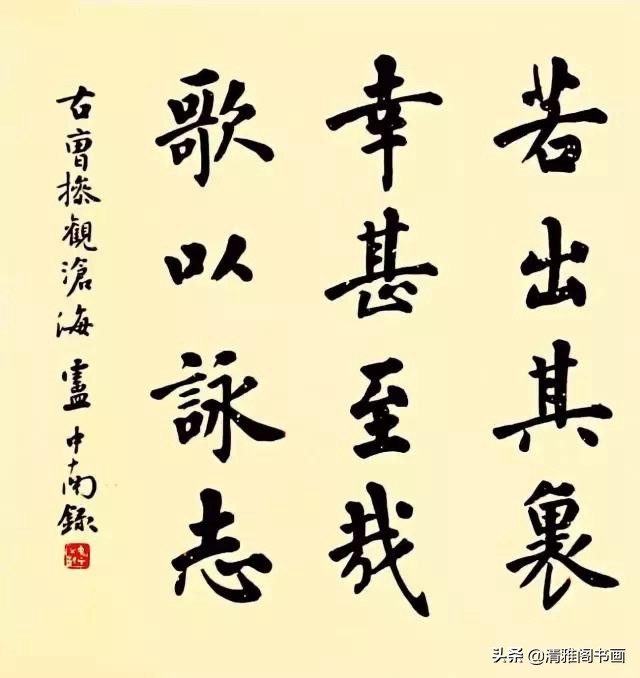 若出其裏
幸甚至哉
歌以詠志
右曹操觀滄海 盧中南錄
头条@清雅阁书画